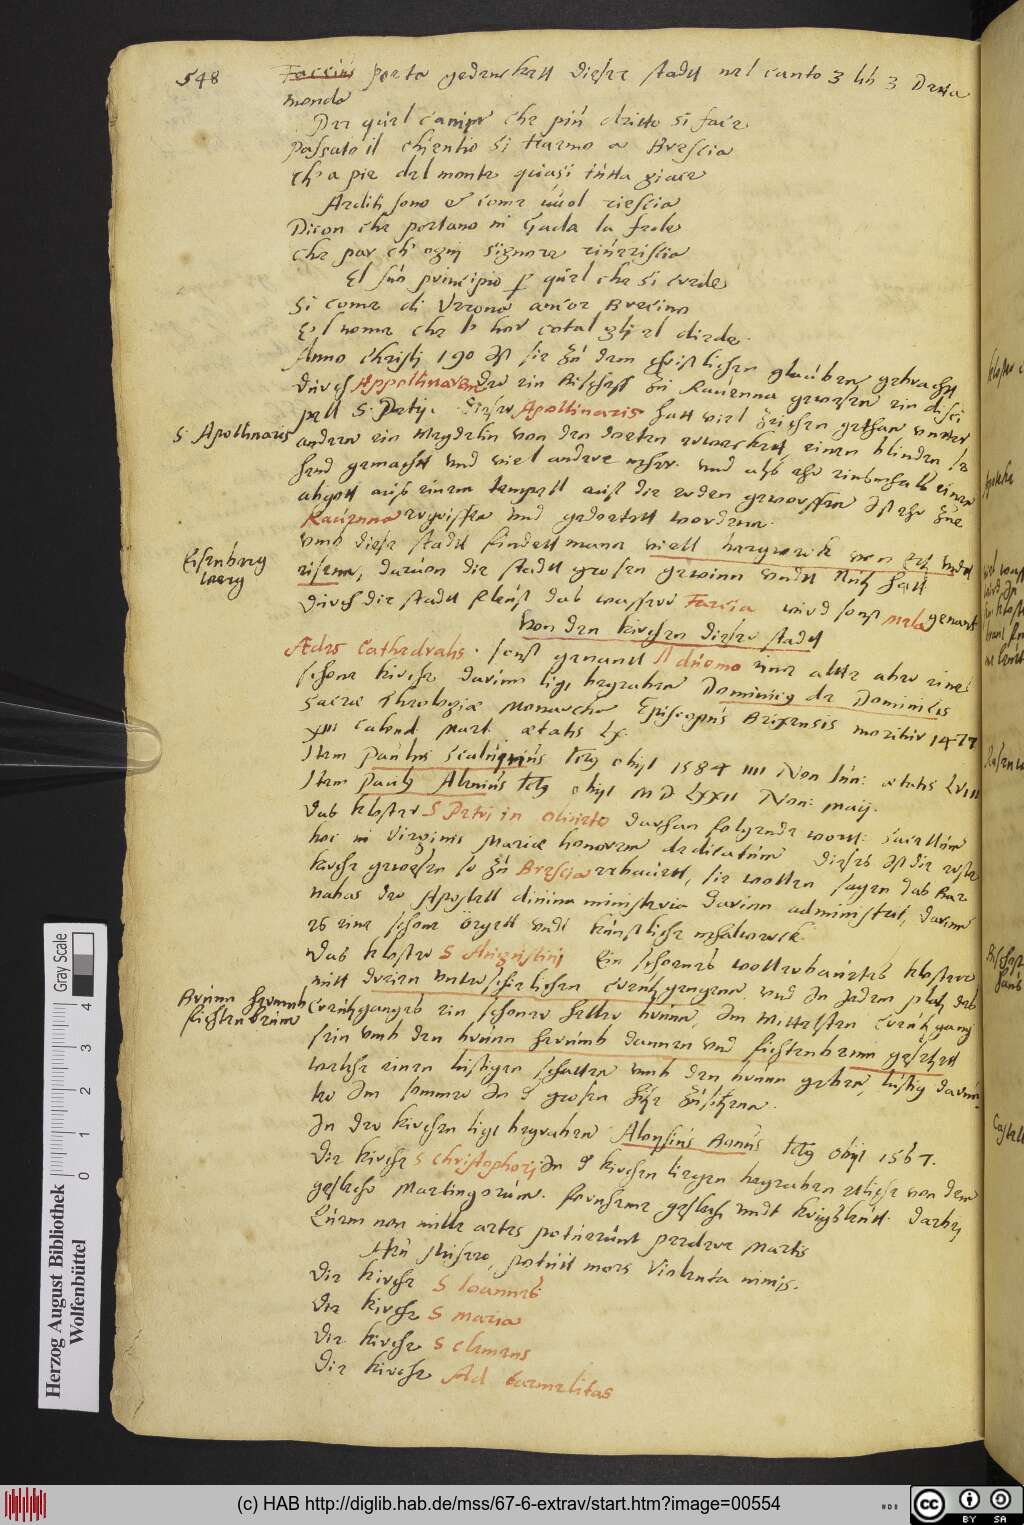 548
Faccius Poeta gedencket dieser stadt nel canto 3 lib 3 Detta
mondo
Per quel camin che più dritto si face
Passato il Chientio si trarmo a Brescia
Ch' a pie del monte quasi tutta giace
Arditi sono et come uuol riescia
Dicon che portano in Gada la fede
che par ch' ogni signore rincrescia
El suo principio per quel che si crede
Si come di Verona ancor Brecino
E'l nome che le hor cotal gli el diede.
Anno Christj 190 Ist sie zu dem christlichen glauben gebracht
durch Appollinarem der ein Bischoff zu Rauenna gewesen ein disci
pell S. Petrj. dieser Apollinaris hatt viel zeichen gethan vnter
S. Apollinaris
andern ein Megdelin von den doeten erwecket, einen blinden se
hend gemacht vnd viel andere mehr. vnd als ehr einsmahls einen
abgott aus einem tempell auf die erden geworffen Ist ehr zue
Rauenna ergriffen vnd gedoetett worden.
Eisenberg
werg
vmb diese stadt findett mann viell bergwerck von Ertz vndt
eisenn, dauon die stadt grosen gewinn vndt Nutz hatt
durch die stadt fleust das wasser Garcia wird sonst mela genant
Von den kirchen dieser stadt
Ædes Cathedralis. sonst genantt Il duomo eine alte aber eine
schone kirche darinn ligt begraben Dominicus de Dominicis
sacræ Theologiæ Monarcha Episcopus Brixensis moritur 1477
XIII calend Mart ætatis LX.
Item Paulus obijt 1584 IIII Non Iun: ætatis LVIII
Item Pauli obijt M D LXXII Non: maij.
das kloster S Petri in oliueto daruhan folgende wortt: sacellum
hoc in virginis Mariæ honorem dedicatum dieses Ist die erste
kirche gewesen so zu Brescia erbauett, sie wollen sagen das Bar
nabas der Apostell diuina ministeria darinn administret, darinn
es eine schone Orgell vndt kunstliche mhalwerck.
Das kloster S Augustinj Ein schoenes wollerbauetes klosterr
mitt dreien vnterschietlichen Creutzgengenn vnd In Jedem platz des
Brunn herumb
fiechtenbeume
Creutzganges ein schoner heller brunn, Im Mittelsten Creutzgang
sein vmb den brunn herumb dannen vnd fiechtenbeum gesetzett
welche einen lustigen schatten vmb den brunn geben, lustig darun
ter Im sommer In der grosen hitze zusitzenn.
In der kirchen ligt begraben Aloysius Bonus obijt 1567.
die kirche S Christophorj In der kirchen liegen begraben etliche von dem
geschlecht Martinengorum. fornheme geschlecht vndt kriegsleutt. darbej
Cum non mille artes potuerunt perdere Martis
Heu misero, potuit mors violenta nimis.
die kirche S Ioannes
die kirche S maria
die kirche S clemens
die kirche Ad carmelitas
Herzog August Bibliothek
Wolfenbüttel
0 1 2 3 4
Gray Scale
(c) HAB http://diglib.hab.de/mss/67-6-extrav/start.htm?image=00554
cc BY SA